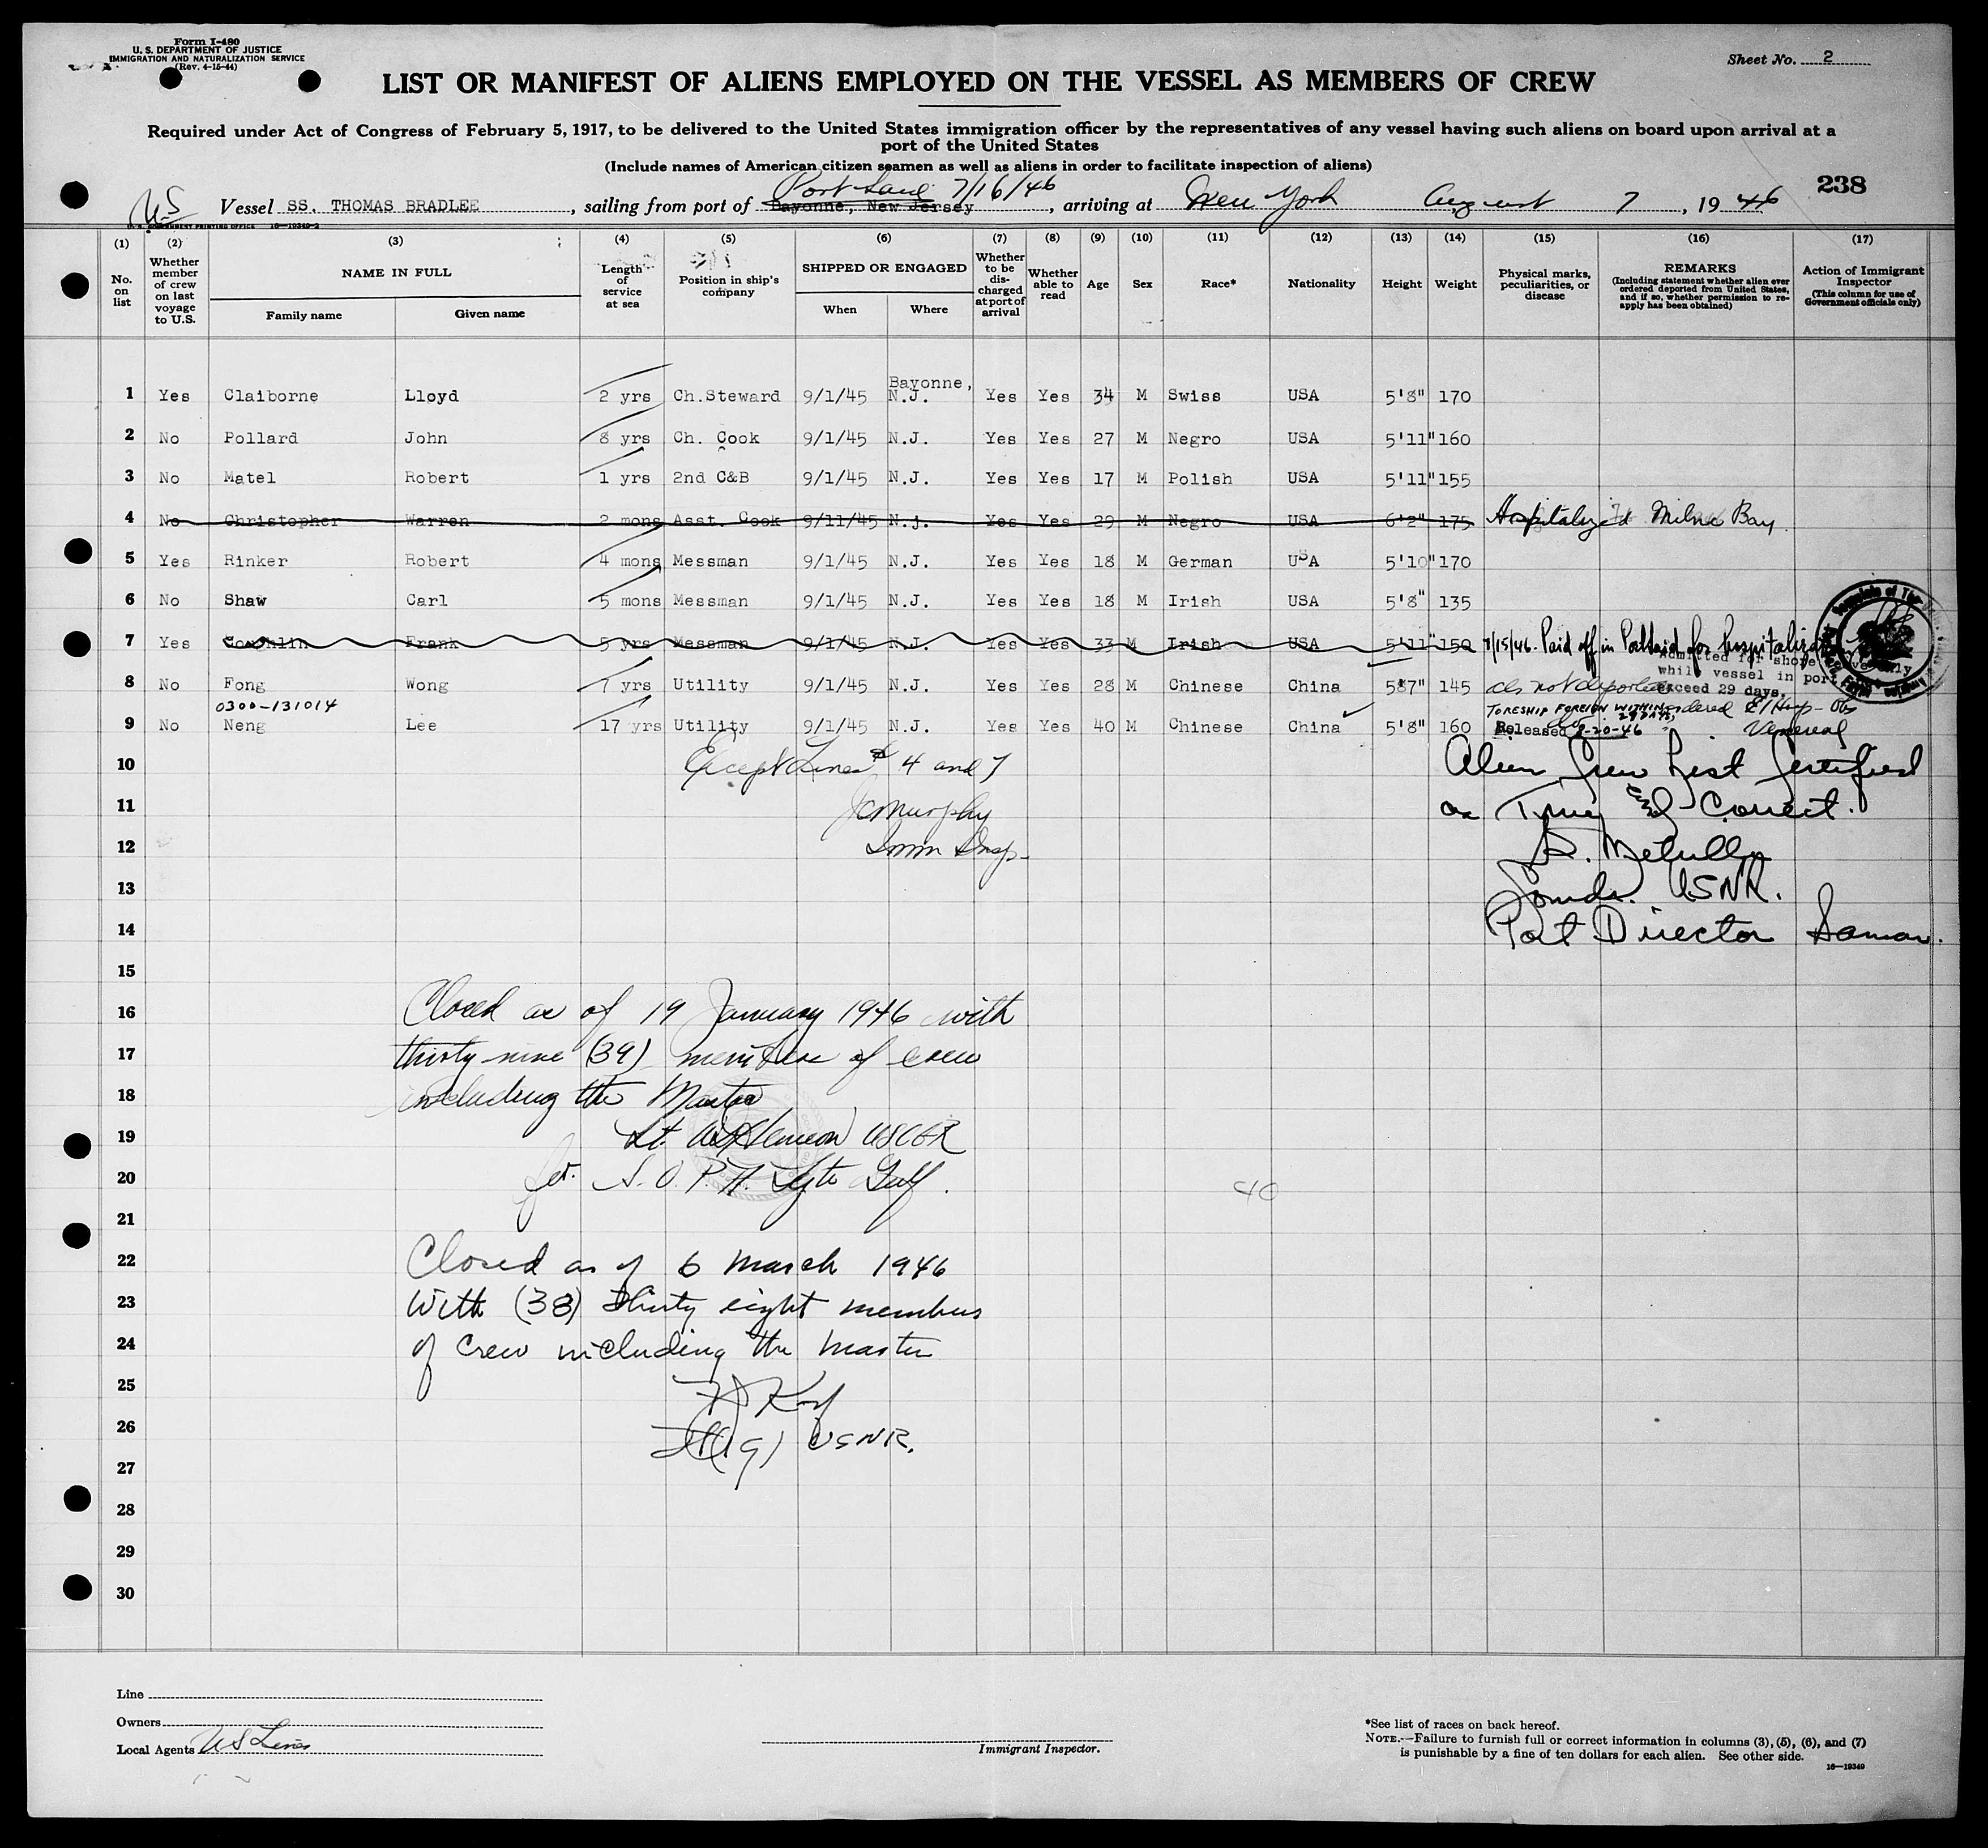 Form I-480
U. S. DEPARTMENT OF JUSTICE
IMMIGRATION AND NATURALIZATION SERVICE
(Rev. 4-15-44)
Sheet No. 2
LIST OR MANIFEST OF ALIENS EMPLOYED ON THE VESSEL AS MEMBERS OF CREW
Required under Act of Congress of February 5, 1917, to be delivered to the United States immigration officer by the representatives of any vessel having such aliens on board upon arrival at a
port of the United States
(Include names of American citizen seamen as well as aliens in order to facilitate inspection of aliens)
238
Port Said 7/16/46
US Vessel SS. THOMAS BRADLEE, sailing from port of Bayonne, New Jersey, arriving at New York August 7, 1946
U. S. GOVERNMENT PRINTING OFFICE 16—19349-2
(1) (2) (3) (4) (5) (6) (7) (8) (9) (10) (11) (12) (13) (14) (15) (16) (17)
No. on list
Whether member of crew on last voyage to U.S.
NAME IN FULL
Family name Given name
Length of service at sea
Position in ship's company
SHIPPED OR ENGAGED
When Where
Whether to be discharged at port of arrival
Whether able to read
Age
Sex
Race*
Nationality
Height
Weight
Physical marks, peculiarities, or disease
REMARKS
(Including statement whether alien ever ordered deported from United States, and if so, whether permission to reapply has been obtained)
Action of Immigrant Inspector
(This column for use of Government officials only)
1 Yes Claiborne Lloyd 2 yrs Ch.Steward 9/1/45 Bayonne, N.J. Yes Yes 34 M Swiss USA 5'8" 170
2 No Pollard John 8 yrs Ch. Cook 9/1/45 N.J. Yes Yes 27 M Negro USA 5'11" 160
3 No Matel Robert 1 yrs 2nd C&B 9/1/45 N.J. Yes Yes 17 M Polish USA 5'11" 155
4 No Christopher Warren 2 mons Asst. Cook 9/11/45 N.J. Yes Yes 29 M Negro USA 6'2" 175 Hospitalized Milne Bay
5 Yes Rinker Robert 4 mons Messman 9/1/45 N.J. Yes Yes 18 M German USA 5'10" 170
6 No Shaw Carl 5 mons Messman 9/1/45 N.J. Yes Yes 18 M Irish USA 5'8" 135
7 Yes Coughlin Frank 5 yrs Messman 9/1/45 N.J. Yes Yes 33 M Irish USA 5'11" 150 7/15/46. Paid off in Portsaid for hospitalization
Admitted for shore leave only
while vessel in port
exceed 29 days.
8 No Fong Wong 7 yrs Utility 9/1/45 N.J. Yes Yes 28 M Chinese China 5'7" 145
0300-131014
TO RESHIP FOREIGN WITHIN 29 DAYS,
9 No Neng Lee 17 yrs Utility 9/1/45 N.J. Yes Yes 40 M Chinese China 5'8" 160 Released 8-20-46 Venereal
10 Except Lines 4 and 7
11 JC Murphy
12 Imm Insp.
Alien Crew List Certified
as True and Correct.
Comdr. USNR.
Port Director Samar.
13
14
15
16 Closed as of 19 January 1946 with
17 thirty nine (39) members of crew
18 including the Master
19 Lt. USCGR
20 for S. O. P. A. Leyte Gulf.
40
21
22 Closed as of 6 March 1946
23 With (38) thirty eight members
24 of Crew including the master
25
26 Lt(jg) USNR.
27
28
29
30
Line
Owners
Local Agents US Lines
Immigrant Inspector.
*See list of races on back hereof.
NOTE.—Failure to furnish full or correct information in columns (3), (5), (6), and (7)
is punishable by a fine of ten dollars for each alien. See other side.
16—19349